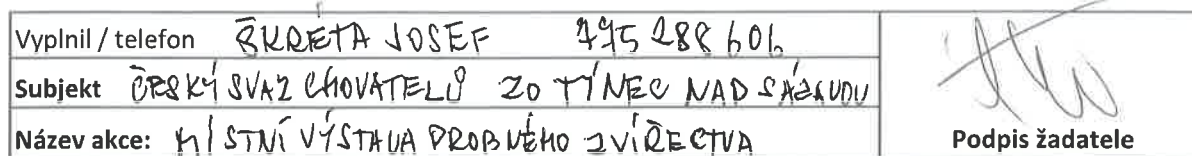 Vyplnil / telefon ŠKRETA JOSEF 775 288 606
Subjekt ČESKÝ SVAZ CHOVATELŮ ZO TÝNEC NAD SÁZAVOU
Název akce: MÍSTNÍ VÝSTAVA DROBNÉHO ZVÍŘECTVA
Podpis žadatele